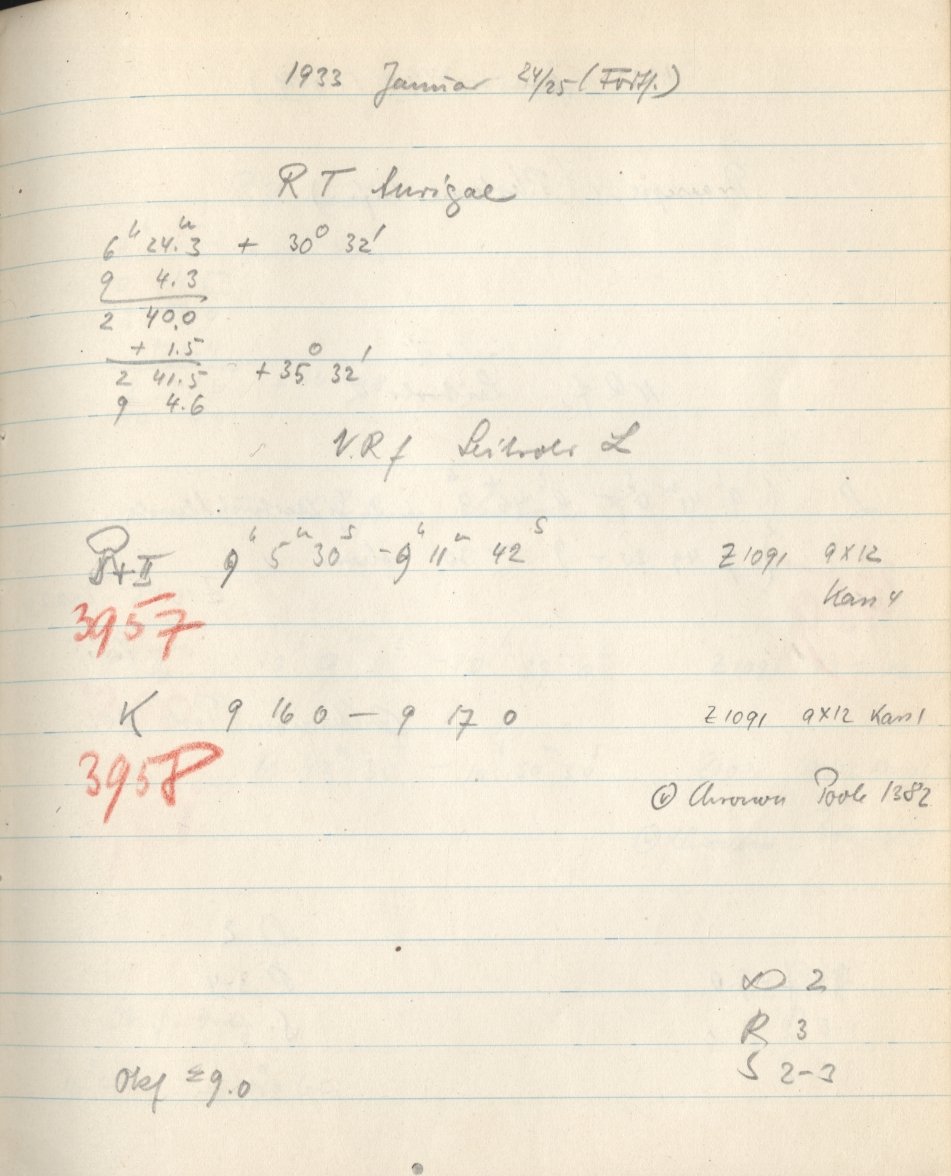 1933 Januar 24/25 (Forts.)
RT Aurigae
6ʰ 24.ᵐ3 + 30° 32'
9 4.3
2 40.0
+ 1.5
2 41.5 + 35° 32'
9 4.6
V.R.f Leitrohr L
+ II 9ʰ 5ᵐ 30ˢ - 9ʰ 11ᵐ 42ˢ Z1091 9x12
Kass 4
3957
K 9 16 0 — 9 17 0 Z1091 9x12 Kass 1
3958
Chronom Poole 1382
∞ 2
R 3
S 2-3
Okf = 9.0